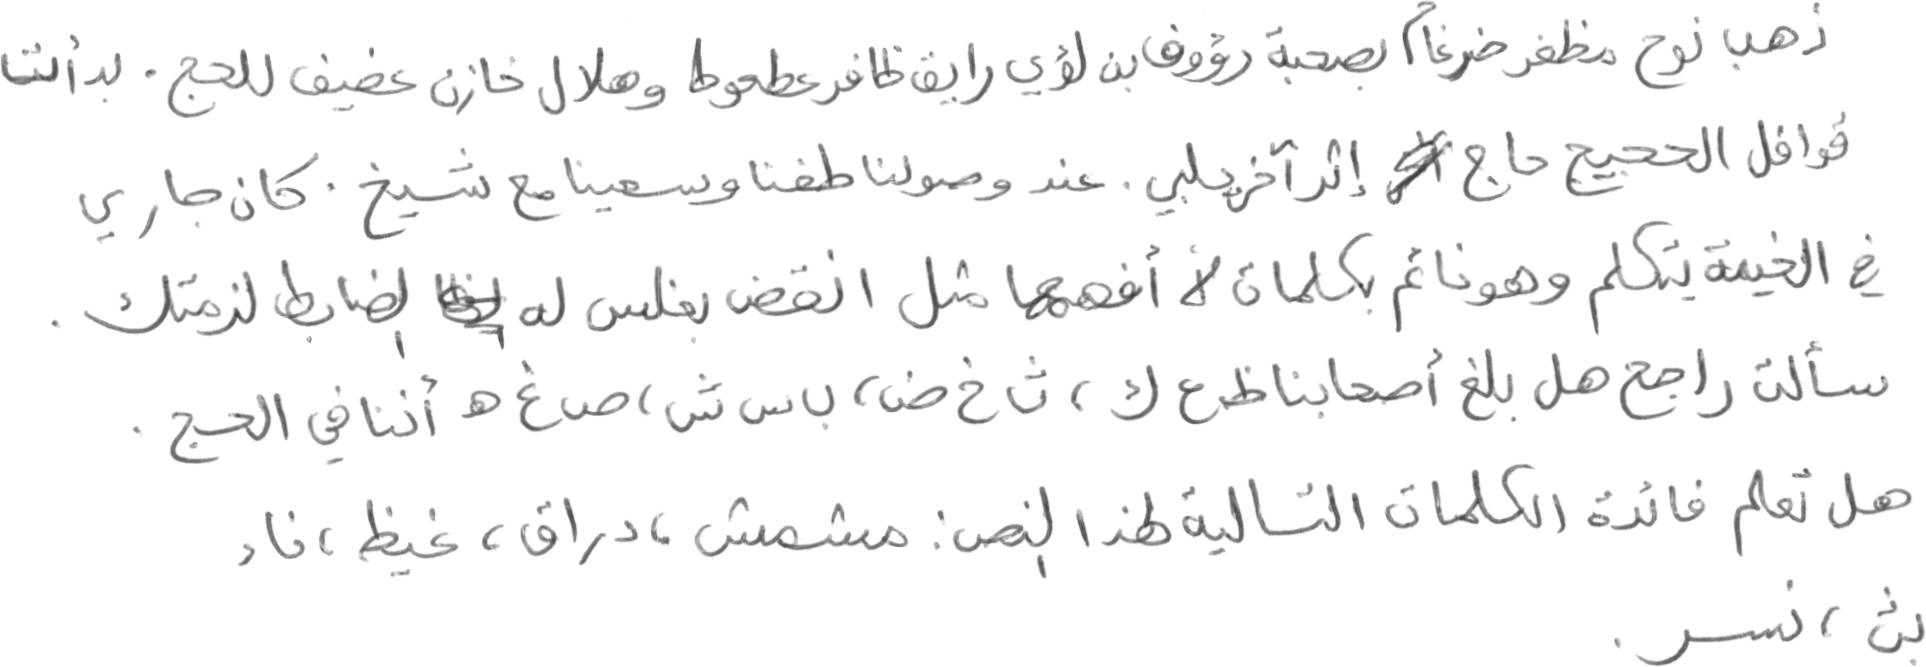 ذهب نوح مظفر ضرغام بصحبة رؤوف بن لؤي رايق ظافر عطعوط وهلال خازن عضيف للحج . بدأت
قوافل الحجيج حاج إثر آخر يلبي . عند وصولنا طفنا وسعينا مع شيخ . كان جاري
في الخيمة يتكلم وهو نائم بكلمات لا أفهمها مثل انقض بغلس له لضابط لزمتك .
سألت راجح هل بلغ أصحابنا ظ ع ك ، ث خ ض ، ب س ش ، ص غ ه أننا في الحج .
هل تعلم فائدة الكلمات التالية لهذا النص : مشمش ، دراق ، غيظ ، ناد
بث ، نسر .